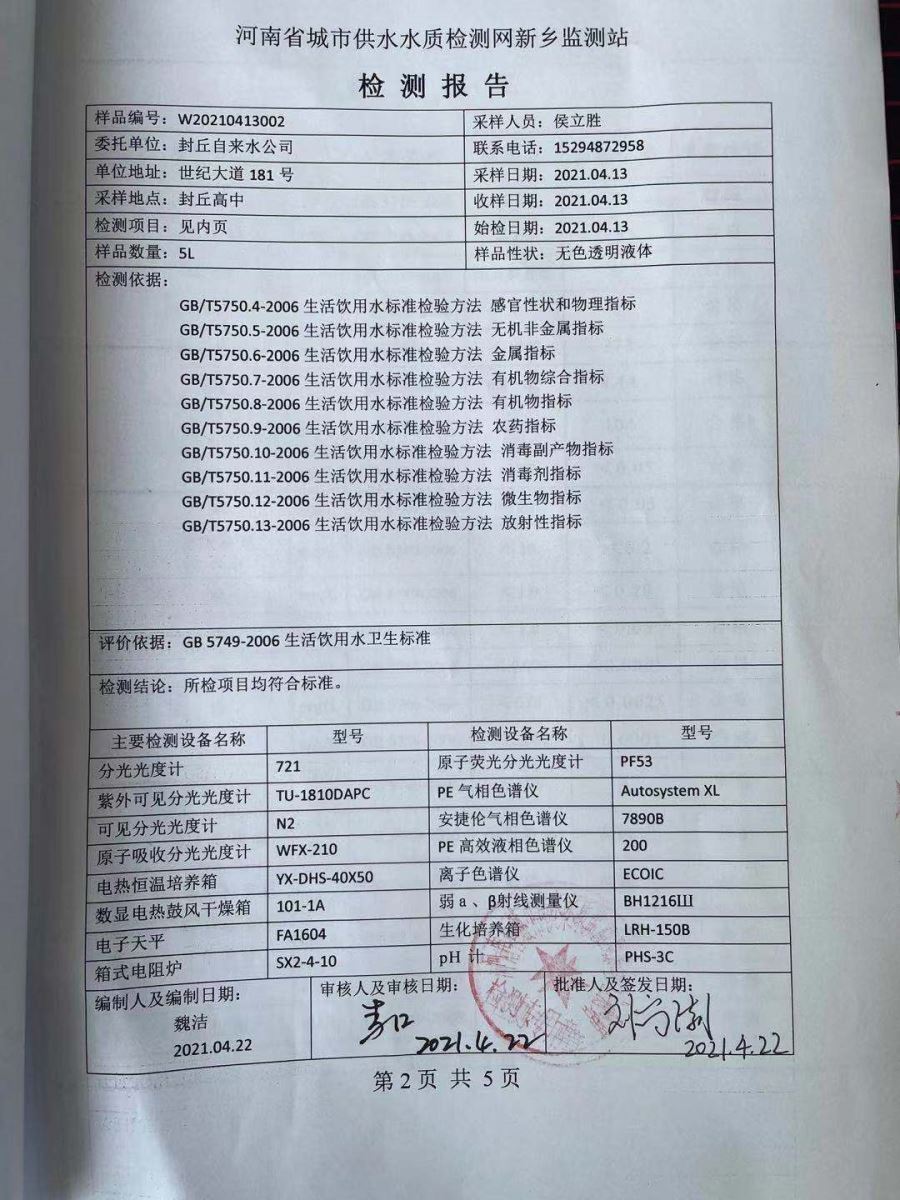 河南省城市供水水质检测网新乡监测站
检测报告
样品编号：W20210413002 采样人员：侯立胜
委托单位：封丘自来水公司 联系电话：15294872958
单位地址：世纪大道 181 号 采样日期：2021.04.13
采样地点：封丘高中 收样日期：2021.04.13
检测项目：见内页 始检日期：2021.04.13
样品数量：5L 样品性状：无色透明液体
检测依据：
GB/T5750.4-2006 生活饮用水标准检验方法 感官性状和物理指标
GB/T5750.5-2006 生活饮用水标准检验方法 无机非金属指标
GB/T5750.6-2006 生活饮用水标准检验方法 金属指标
GB/T5750.7-2006 生活饮用水标准检验方法 有机物综合指标
GB/T5750.8-2006 生活饮用水标准检验方法 有机物指标
GB/T5750.9-2006 生活饮用水标准检验方法 农药指标
GB/T5750.10-2006 生活饮用水标准检验方法 消毒副产物指标
GB/T5750.11-2006 生活饮用水标准检验方法 消毒剂指标
GB/T5750.12-2006 生活饮用水标准检验方法 微生物指标
GB/T5750.13-2006 生活饮用水标准检验方法 放射性指标
评价依据：GB 5749-2006 生活饮用水卫生标准
检测结论：所检项目均符合标准。
主要检测设备名称 型号 检测设备名称 型号
分光光度计 721 原子荧光分光光度计 PF53
紫外可见分光光度计 TU-1810DAPC PE 气相色谱仪 Autosystem XL
可见分光光度计 N2 安捷伦气相色谱仪 7890B
原子吸收分光光度计 WFX-210 PE 高效液相色谱仪 200
电热恒温培养箱 YX-DHS-40X50 离子色谱仪 ECOIC
数显电热鼓风干燥箱 101-1A 弱 a 、β射线测量仪 BH1216III
电子天平 FA1604 生化培养箱 LRH-150B
箱式电阻炉 SX2-4-10 pH 计 PHS-3C
编制人及编制日期： 审核人及审核日期： 批准人及签发日期：
魏洁
2021.04.22 2021.4.22 2021.4.22
第 2 页 共 5 页